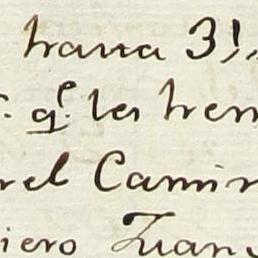 trana 3),,
. q.e les trem
rel Camin
iero Juan